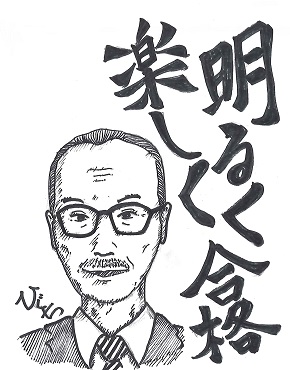 明るく合格
楽しく